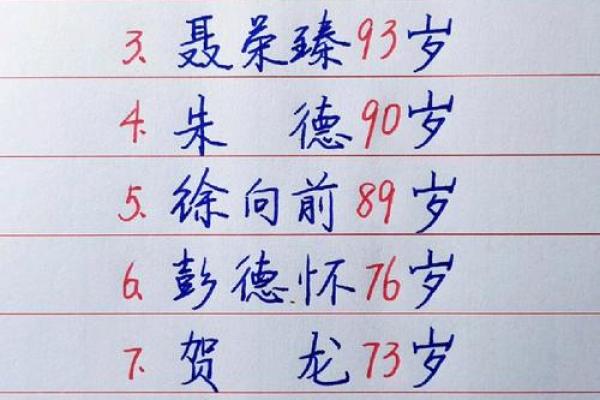 3、聂荣臻93岁
4、朱 德90岁
5、徐向前89岁
6、彭德怀76岁
7、贺 龙73岁